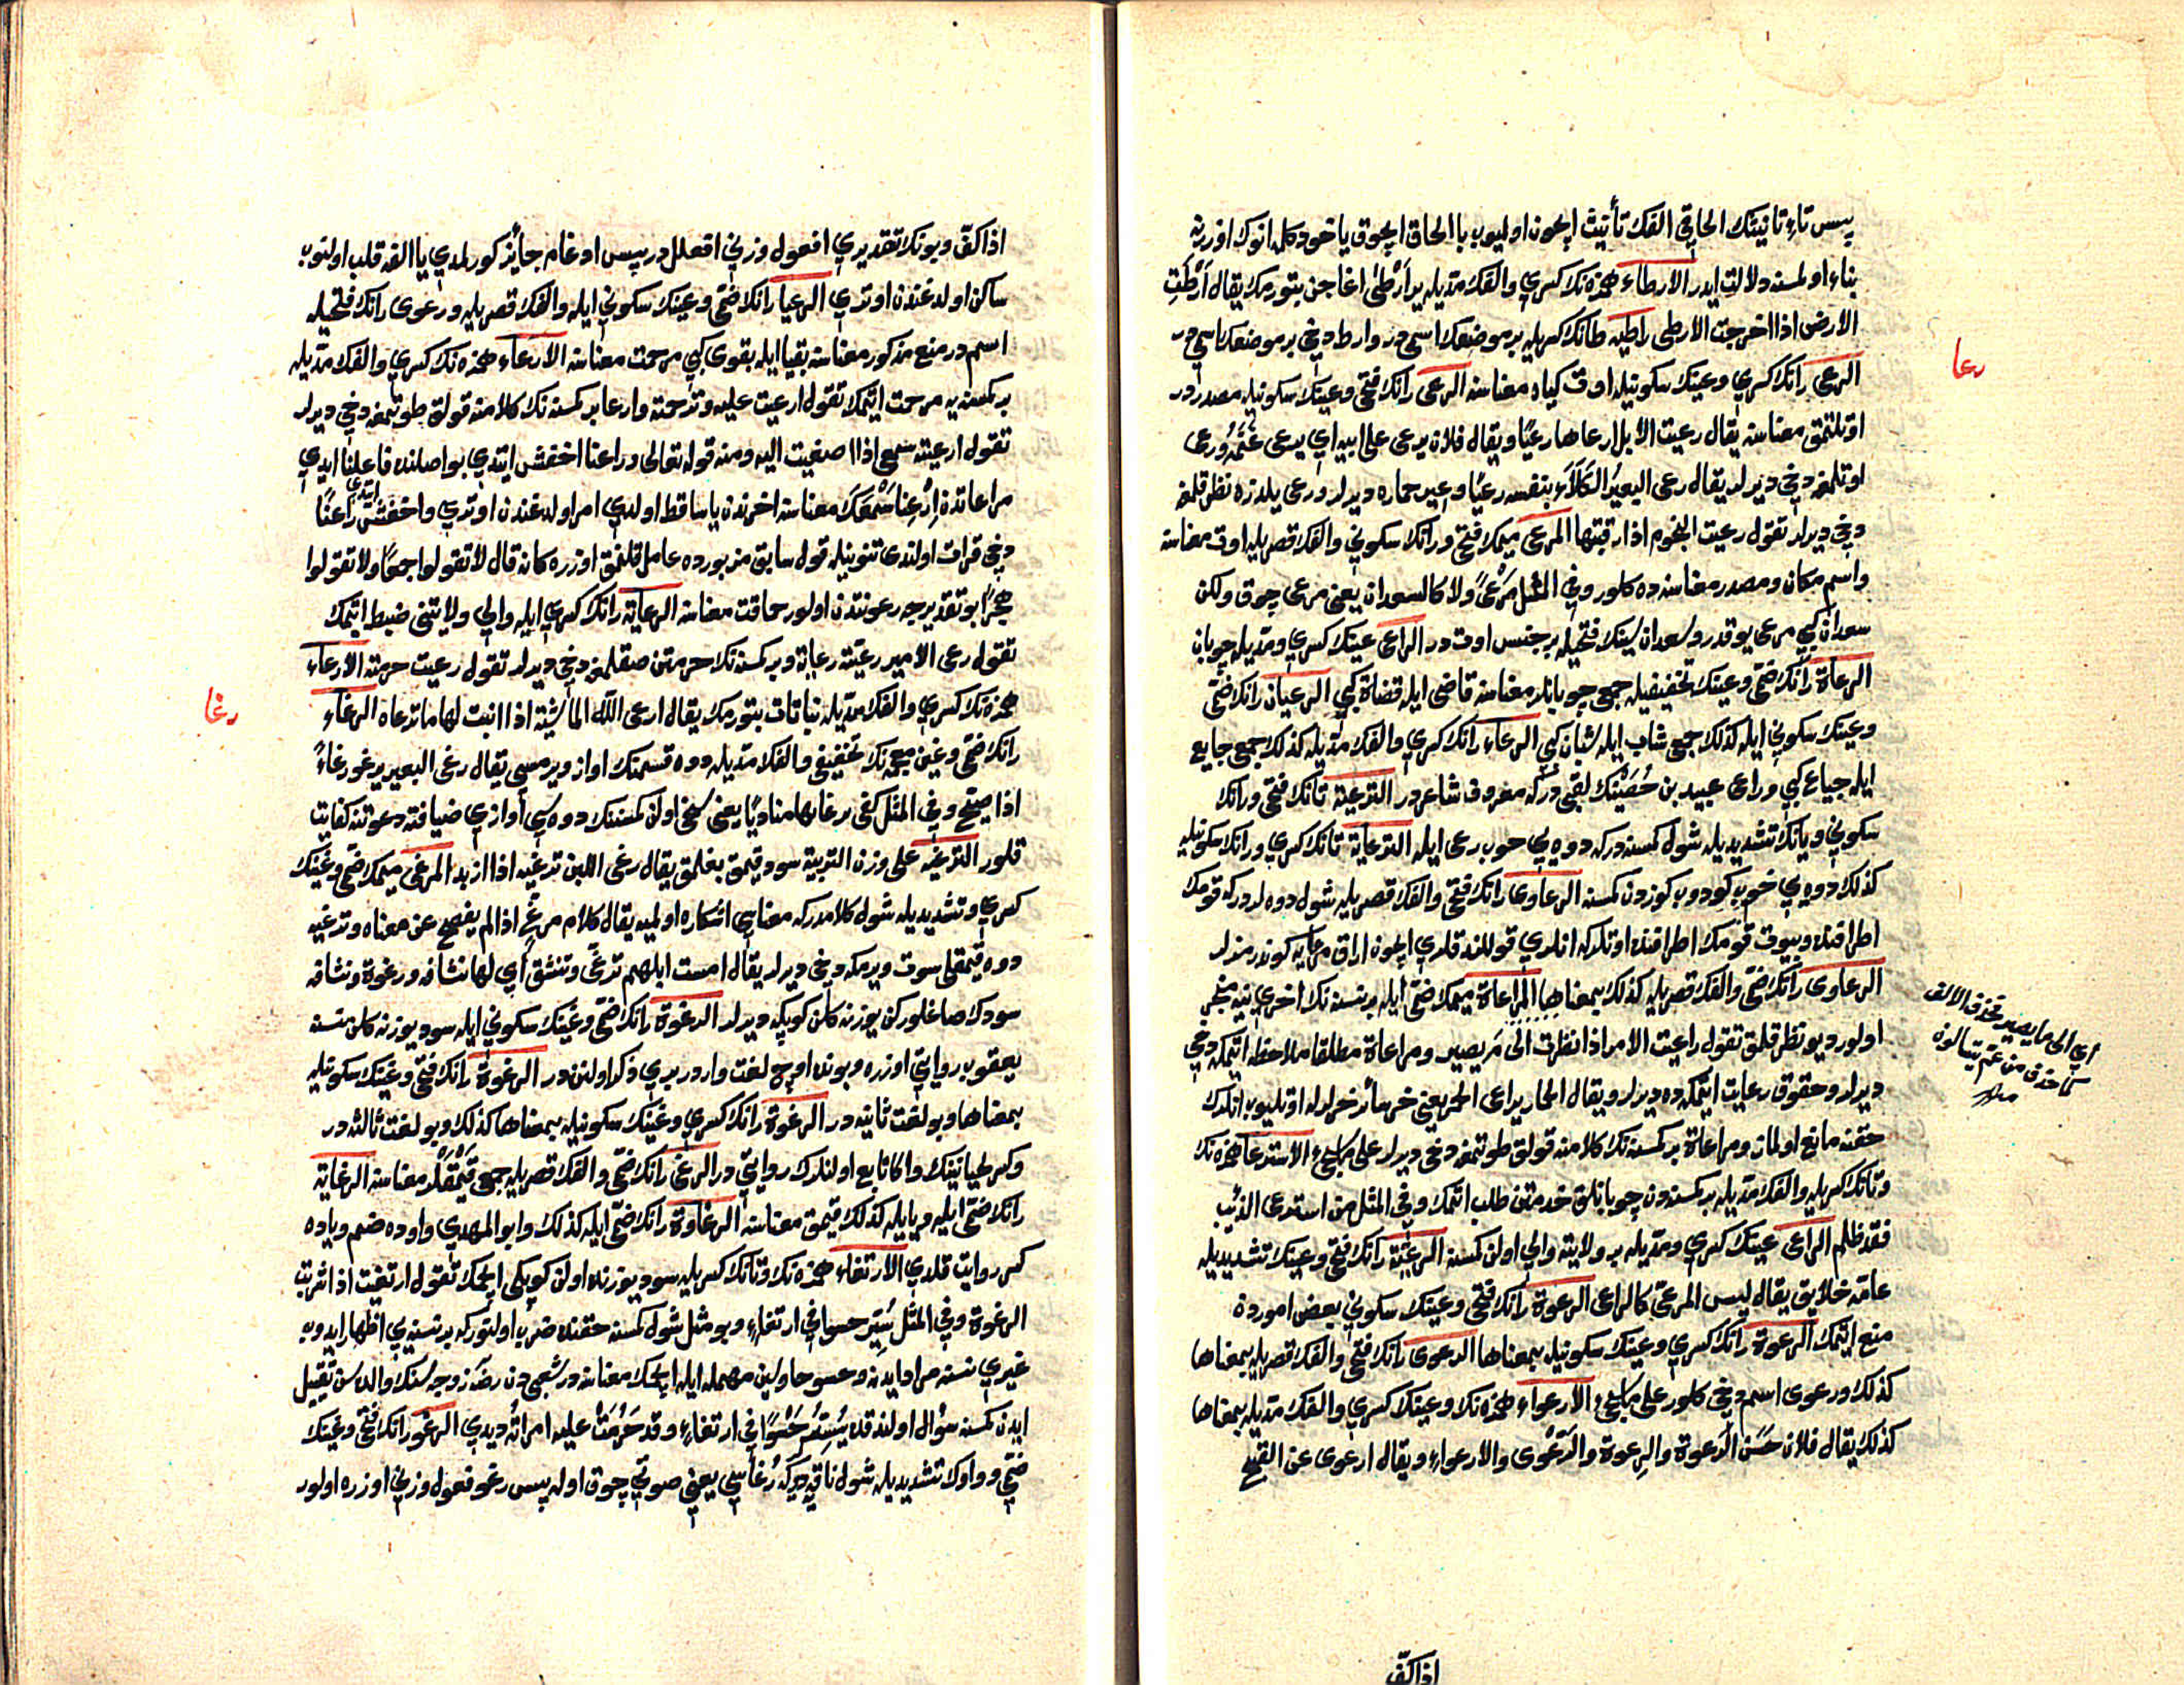 پس تاء تانيثك الحاقى الفك تأنيث ايچون اولميوب با الحاق ايچون ياخود كله انوك اوزرينه
بناء اولمسنه دلالت ايدر الارطاء همزه نك كسرى والفك مديله يرارطى اغاجن بتورمك يقال ارطت
الارض اذا اخرجت الارطى راطيه طانك كسريله بر موضعك اسمى در وارط دخى بر موضعك اسمى در
رعا
الرعى رانك كسرى وعينك سكونيله اوت كياه معناسنه الرعى رانك فتحى وعينك سكونيله مصدر در
اوتلتمق معناسنه يقال رعيت الابل ارعاها رعيا ويقال فلان يرعى على ابيه اى يرعى غنمه ورعى
اوتلمغه دخى ديرلر يقال رعى البعير الكلأ بنفسه رعيا وعير حماره ديرلر ورعى يلدزه نظر قلمغه
دخى ديرلر تقول رعيت النجوم اذا رقبتها المرعى ميمك فتحى ورانك سكونى والفك قصريله اوت معناسنه
واسم مكان ومصدر معناسنه ده كلور وفى المثل مرعى ولا كالسعدان يعنى مرعى چوق ولكن
سعدان كبى مرعى يوقدر وسعدان سينك فتحيله بر جنس اوت در الراعى عينك كسرى ومديله چوبان
الرعاة رانك ضمى وعينك تخفيفيله جمع چوبانلر معناسنه قاضى ايله قضاة كبى الرعيان رانك ضمى
وعينك سكونى ايله كذلك جمع شاب ايله شبان كبى الرعاء رانك كسرى والفك مديله كذلك جمع جايع
ايله جياع كبى وراعى عبيد بن حصينك لقبى در كه معروف شاعر در الترعية تانك فتحى ورانك
سكونى ويانك تشديديله شول كمسنه در كه دوه يى خوب رعى ايله الترعاية تانك كسرى ورانك سكونيله
كذلك دوه يى خوب كودوب كوزدن كمسنه الرعاوى رانك فتحى والفك قصريله شول دوه لردر كه قومك
اطرافنده وبيوت قومك اطرافنده اوتلركه انلرى قوللندقلرى ايچون اراق مرعايه كوندرمزلر
الرعاوى رانك ضمى والفك قصريله كذلك بمعناها المراعاة ميمك ضمى ايله بر نسنه نك اخرى نيه منجر
اى الى ما يصير تحذف الالف
كما حذف من عم يتسالون
اولور ديو نظر قلمق تقول راعيت الامر اذا نظرت الى م يصير ومراعاة مطلقا ملاحظه ايتمكه دخى
ديرلر وحقوق رعايت ايتمكه ده ديرلر ويقال الحمار يراعى الحمر يعنى خر سائر خرلرله اوتليوب انلرك
حقنه مانع اولمان ومراعاة بر كمسنه نك كلامنه قولق طوتمغه دخى ديرلر على ما يجىء الاسترعا همزه نك
وتانك كسريله والفك مديله بر كمسنه دن چوبانلق خدمتن طلب اتمك وفى المثل من استرعى الذئب
فقد ظلم الراعى عينك كسرى ومديله بر ولايته والى اولن كمسنه الرعية رانك فتحى وعينك تشديديله
عامه خلايق يقال ليس المرعى كالراعى الرعوة رانك فتحى وعينك سكونى بعض اموردن
منع اتمك الرعوة رانك كسرى وعينك سكونيله بمعناها الرعوى رانك فتحى والفك قصريله بمعناها
كذلك ورعوى اسم دخى كلور على ما يجىء الارعواء همزه نك وعينك كسرى والفك مديله بمعناها
كذلك يقال فلان حسن الرعوة والرعوة والرعوى والارعواء ويقال ارعوى عن القبيح
اذا كف
اذا كف وبونك تقديرى افعول وزنى افعلل در پس ادغام جايز كورلمدى يا الفه قلب اولنوب
ساكن اولدغندن اوترى الرعيا رانك ضمى وعينك سكونى ايله والفك قصريله ورعوى رانك فتحيله
اسم در منع مذكور معناسنه بقيا ايله بقوى كبى مرحمت معناسنه الارعاء همزه نك كسرى والفك مديله
بر كمسنه يه مرحمت ايتمك تقول ارعيت عليه وترحمته وارعا بر كمسنه نك كلامنه قولق طوتمغه دخى ديرلر
تقول ارعيته سمعى اذا اصغيت اليه ومنه قوله تعالى وراعنا اخفش ايتدى بو اصلنده فاعلنا ايدى
مراعاتدن ارعنا سمعك معناسنه اخرندن يا ساقط اولدى امر اولدغندن اوترى واخفش ايتدى راعنا
دخى قرات اولندى تنونيله قول سابق مزبورده عامل قلنمق اوزره كانه قال لا تقولوا حمقا ولا تقولوا
هجرا بو تقديرجه رعونتدن اولور حماقت معناسنه الرعاية رانك كسرى ايله والى ولايتنى ضبط ايتمك
تقول رعى الامير رعيته رعاية وبر كمسنه نك حرمتن صقلمغه دخى ديرلر تقول رعيت حرمته الارعاء
همزه نك كسرى والفك مديله نباتات بتورمك يقال ارعى الله الماشية اذا انبت لها ما ترعاه الرغاء
رغا
رانك ضمى وغين معجمه نك تخفيفى والفك مديله دوه قسمنك اواز ويرمسى يقال رغى البعير يرغو رغاء
اذا صيح وفى المثل كفى برغائها مناديا يعنى سخى اولن كمسنه نك دوه سى اوازى ضيافته دعوتنه كفايت
قلور الترغيه على وزن التربية سود قيمق بغلمق يقال رغى اللبن ترغيه اذا ازبد المرغى ميمك ضمى وغينك
كسرى وتشديديله شول كلامدر كه معناسى اشكاره اولميه يقال كلام مرغ اذا لم يفصح عن معناه وترغيه
دوه قيمقلى سوت ويرمكه دخى ديرلر يقال امست ابلهم ترغى وتنشق اى لها نشافه ورغوة ونشافه
سودك صاغلوركن يوزنه كلن كوپكه ديرلر الرغوة رانك ضمى وغينك سكونى ايله سود يوزنه كلن نسنه
يعقوب روايتى اوزره وبونده اوچ لغت واردر برى ذكر اولنندر الرغوة رانك فتحى وغينك سكونيله
بمعناها وبو لغت ثانيه در الرغوة رانك كسرى وغينك سكونيله بمعناها كذلك وبو لغت ثالثه در
وكسر لحيانينك واكا تابع اولنلرك روايتى در الرغى رانك ضمى والفك قصريله جمع قيمقلر معناسنه الرغاية
رانك ضمى ايله ويايله كذلك قيمق معناسنه الرغاوة رانك ضمى ايله كذلك وابو المهدى واوده ضم وياده
كسر روايت قلدى الارتغاء همزه نك وتانك كسريله سود يوزنده اولن كوپكى ايچمك تقول ارتغيت اذا شربت
الرغوة وفى المثل يسر حسوا فى ارتغاء وبو مثل شول كمسنه حقنده ضرب اولنور كه بر نسنه يى اظهار ايدوب
غيرى نسنه مراد ايدنه وحسو حا وسين مهمله ايله ايچمك معناسنه در شعبى دن رضه زوجه سنك والده سن تقبيل
ايدن كمسنه سؤال اولندقده يسر حسوا فى ارتغاء وقد حرمت عليه امراته ديدى الرغو رانك فتحى وغينك
ضمى وواوك تشديديله شول ناقه در كه رغاسى يعنى صوتى چوق اوله پس رغو فعول وزنى اوزره اولور